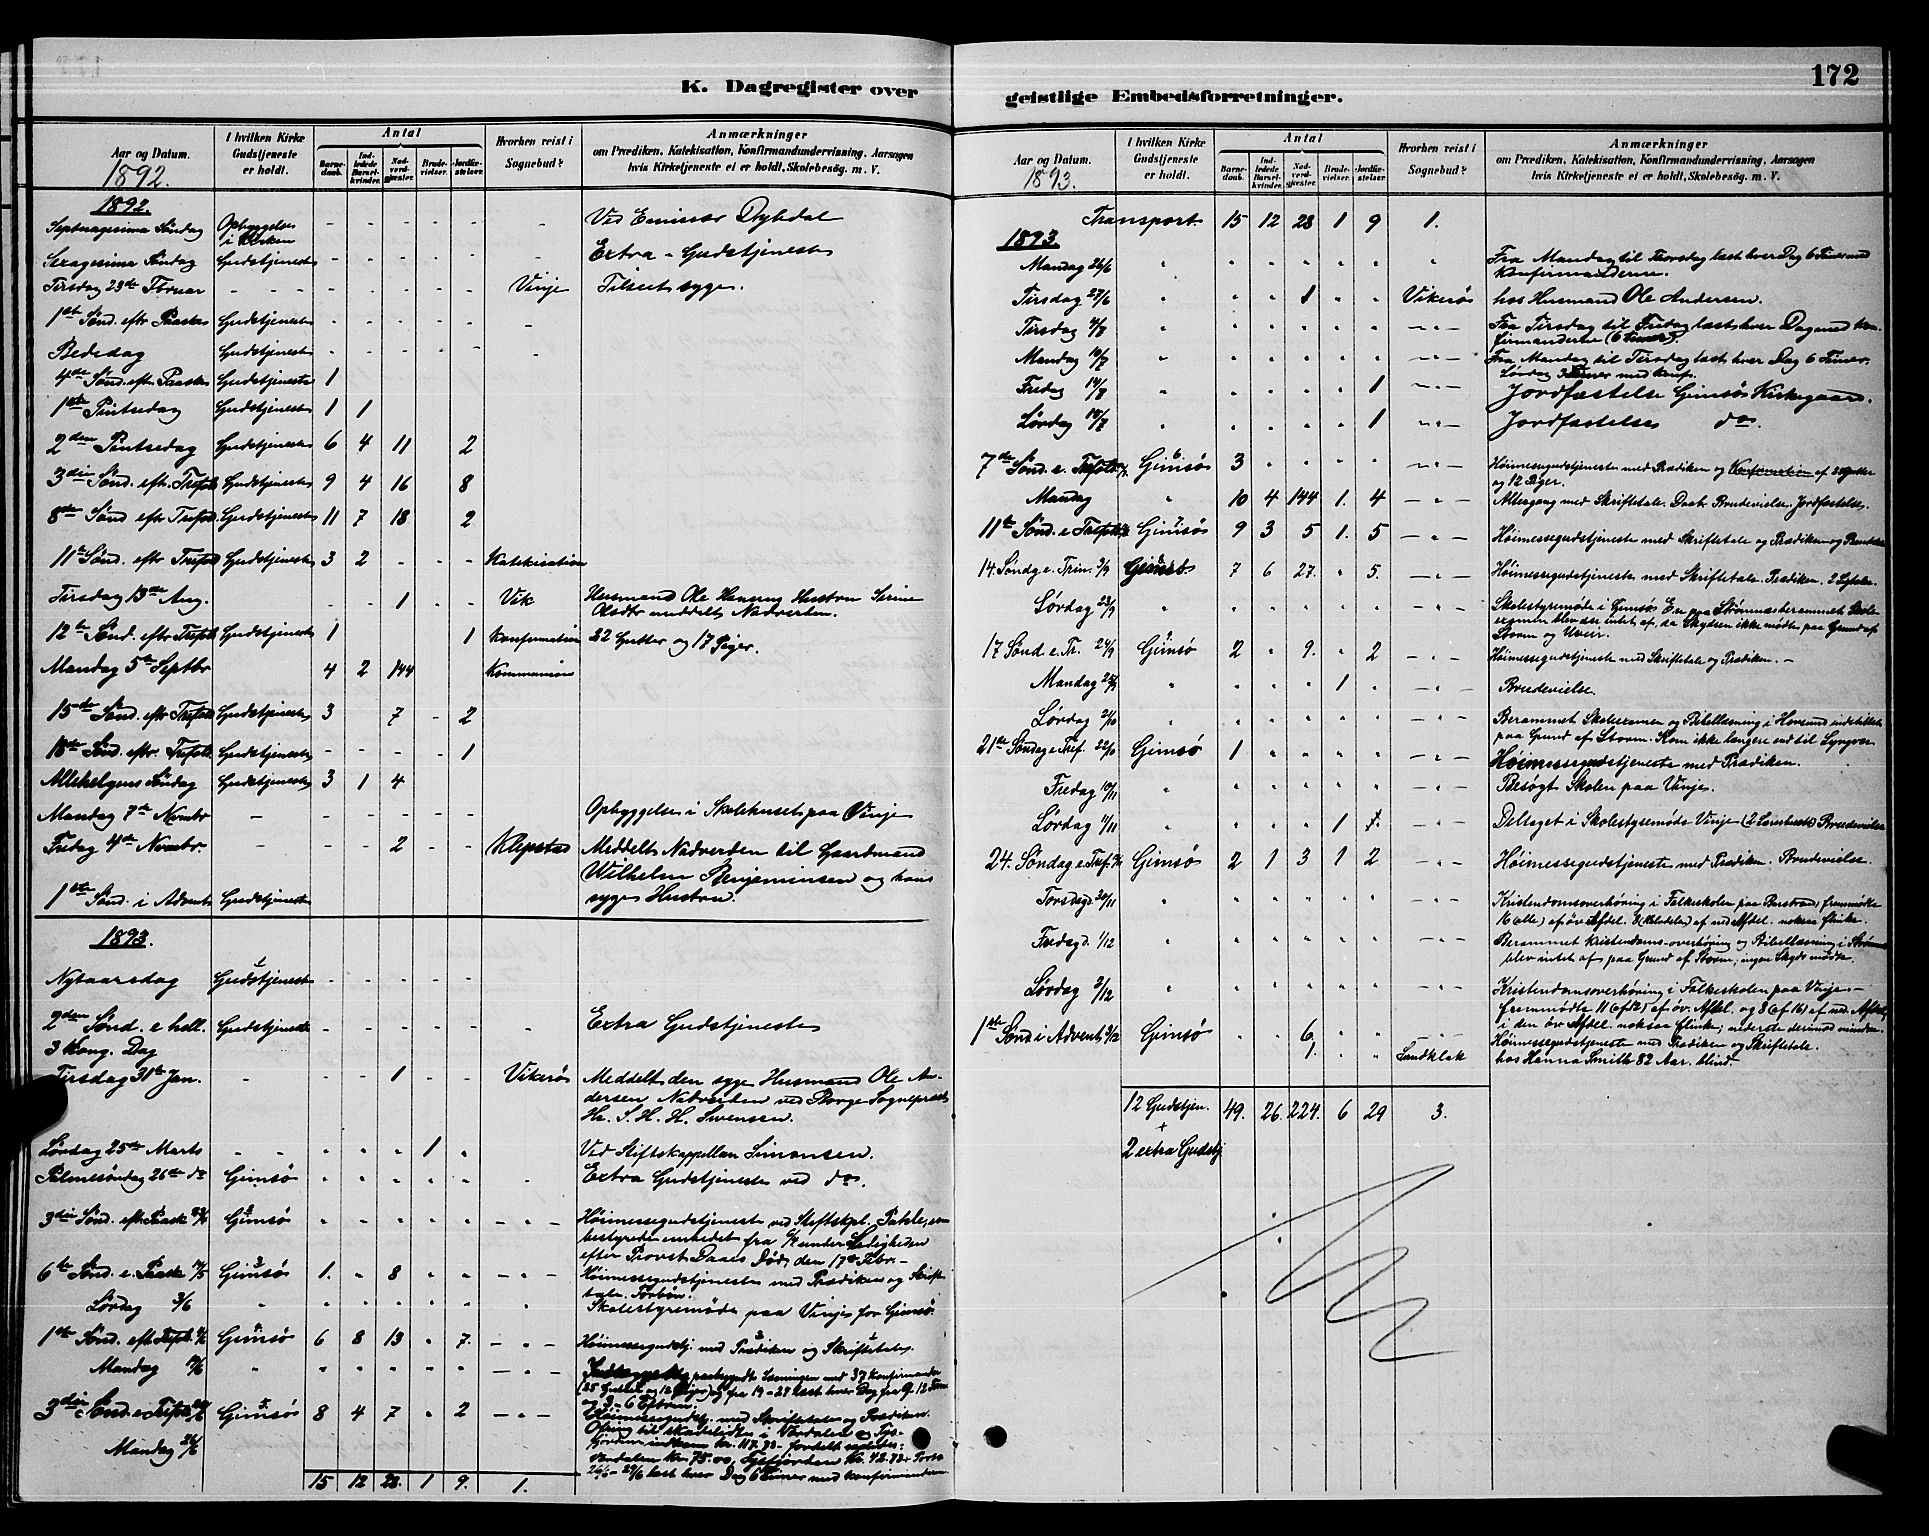 K. Dagregister over
Aar og Datum. 1892.
I hvilken Kirke Gudstjeneste er holdt.
Antal
Barne-daab.
Ind-ledede Barsel-kvinder.
Nad-verd-gjæster.
Brude-vielser.
Jordfæ-stelser.
Hvorhen reist i Sognebud?
Anmærkninger
om Prædiken, Katekisation, Konfirmandundervisning, Aarsagen
hvis Kirketjeneste ei er holdt, Skolebesög. m. V.
1892.
Septuagesima Söndag Opbyggelse i Kirken - - - - - - Ved Emissær Dybdal
Sexagesima Söndag Gudstjeneste - - - - - - Extra-Gudstjeneste
Tirsdag 23de Februar - - - - - - Vinje Tilseet syge.
1ste Sönd. eftr Paaske Gudstjeneste - - - - - -
Bededag Gudstjeneste - - - - - -
4de Sönd. eftr. Paaske Gudstjeneste 1
1ste Pintsedag Gudstjeneste 1 1
2den Pintsedag Gudstjeneste 6 4 11 2
3die Sönd. eftr. Trefold Gudstjeneste 9 4 16 8
8de Sönd eftr Trefold. Gudstjeneste 11 7 18 2
11te Sönd. eftr Trefold Gudstjeneste 3 2 - - - Katekisation
Tirsdag 13de Aug. - - 1 - - Vik Husmand Ole Hansens Hustru Serine
Olsdtr meddelt Nadverden.
12te Sönd. eftr Trefold Gudstjeneste 1 1 Konfirmation 22 Gutter og 17 Piger.
Mandag 5te Septbr 4 2 144 Kommunion
15de Sönd. eftr Trefold Gudstjeneste 3 7 - 2
18de Sönd. eftr. Trefold. Gudstjeneste - - - - 1
Allehelgens Söndag Gudstjeneste 3 1 4
Mandag 7de Novembr - - - - - - Opbyggelse i Skolehuset paa Vinje
Fredag 4de Novembr. - - - 2 - - Klepstad Meddelt Nadverden til Gaardmand
Wilhelm Benjaminsen og hans
1ste Sönd. i Advent Gudstjeneste syge Hustru.
1893.
Nytaarsdag Gudstjeneste - - - - -
2den Sönd. e hell. Gudstjeneste - - - - - Extra Gudstjeneste
3 Kong. Dag
Tirsdag 31te Jan. - - - 1 - - Vikerös Meddelt den syge Husmand Ole An-
dersen Nadverden ved Borge Sogneprest
Hr. S. H. H. Swensen.
Lördag 25de Marts - - - - 1 - Ved Stiftskappellan Simonsen.
Palmesöndag 26de do Gimsö Extra Gudstjeneste ved do.
3die Sönd. eftr Paaske Gimsö Höimessegudstjeneste ved Stiftskpl. Pahle, som
bestyrede embedet fra under Ledigheden
efter Provst Daaes Död, den 17de Febr.-
6te Sönd. e. Paaske 14/5 Gimsö 1. 8 Höimessegudstjeneste med Prædiken og Skrifte-
tale. Forbön.
Lördag 3/6 Skolestyremöde paa Vinje for Gimsö.
1ste Sönd. eft Trefold. 4/6 Gimsö 6 8 13 7. Höimessegudstj. med Prædiken og Skriftetale.
Mandag paabegyndte Læsningen med 37 konfirmander
(25 Gutter og 12 Piger) og fra 19-24 læst hver Dag fra 9-12 Form
og 3-6 Efterm.
3die Sönd. e Trefold. Gimsö 8 4 7 2 Höimessegudstj. med Skriftetale og Prædiken.
Ofring til skadelidte i Værdalen og Tys-
Mandag 26/6 fjorden indkom kr. 117.73 fordelt saaledes:
Værdalen kr. 75.00, Tysfjorden Kr. 42.73. Fra
26/6-29/6 læst hver Dag 6 Timer med konfirmanderne.
15 12 28. 1 9. 1.
172
geistlige Embedsforretninger.
Aar og Datum. 1893.
I hvilken Kirke Gudstjeneste er holdt.
Antal
Barne-daab.
Ind-ledede Barsel-kvinder.
Nad-verd-gjæster.
Brude-vielser.
Jordfæ-stelser.
Hvorhen reist i Sognebud?
Anmærkninger
om Prædiken, Katekisation, Konfirmandundervisning, Aarsagen
hvis Kirketjeneste ei er holdt, Skolebesög. m. V.
Transport. 15 12 28 1 9 1.
1893.
Mandag 26/6 Fra Mandag til Torsdag læst hver Dag 6 Timer med
Konfirmanderne.
Tirsdag 27/6 1 Vikerös hos Husmand Ole Andersen.
Tirsdag Fra Tirsdag til Fredag læst hver Dag med kon-
firmanderne (6 Timer).
Mandag 10/7 Fra Mandag til Tirsdag læst hver Dag 6 Timer.
Löndag 3 Timer med konf.
Fredag 1 Jordfæstelse Gimsös Kirkegaard.
Lördag 1 Jordfæstelse do.
7de Sönd. e. Trefold. Gimsös 3 Höimessegudstjeneste med Prædiken og Konfirmation af 25 Gutter
og 12 Piger.
Mandag 10 4 144 1. 4 Altergang med Skriftetale. Daab. Brudevielse. Jordfæstelse.
11te Sönd. e Trefold. Gimsös 9 3 5 1. 5 Höimessegudstjeneste med Skriftetale og Prædiken og Brudevielse
14. Söndg e. Trin. 3/9 Gimsö. 7 6 27. 5. Höimessegudstjeneste med Skriftetale. Prædiken.
Lördag 23/9 Skolestyremöde i Gimsö En paa Strömnæs berammet Skole-
examen blev der intet af, da Skydsen ikke mödte paa Grund af
Storm og Uveir.
17 Sönd. e. Tr. 24/9 Gimsö 2 9. 2 Höimessegudstjeneste med Skriftetale og Prædiken.-
Mandag 25/9 1 Brudevielse.
Lördag Berammet Skoleexamen og Bibellæsning i Hovsund indstillet
paa Grund af Storm. Kom ikke længere end til Lyngvær
21de Söndag e Tref. 22/10 Gimsö 1 Höimessegudstjeneste med Prædiken.
Fredag 10/11 Besögt Skolen paa Vinje.
Lördag 11/11 1 Deltaget i Skolestyremöde Vinje Brudevielse
24. Söndag e. Tref. Gimsö 2 1 3 1 2 Höimessegudstjeneste med Prædiken. Brudevielse.
Torsdag 30/11 Kristendomsoverhöring i Folkeskolen paa fremmödte
16 (alle) af öv Afdel. af ned Afdel. noksaa flinke.
Fredag d. 1/12 Berammet kristendoms-overhöring og Bibellæsning i Strömnæs
blev intet af paa Grund af Storm; ingen Skyds mödte.
Lördag 2/12 Kristendomsoverhöring i Folkeskolen paa Vinje-
fremmödte 11 (af 12) af öv. Afdel. og 8 (af 16) af ned. Afdel,
i den öv Afdel. noksaa flinke; nederste derimod mindre.
1ste Sönd i Advent 3/12 Gimsö 6, Höimessegudstjeneste med Prædiken og Skriftetale.
1. Sundklak hos Hanna Smith 82 Aar. blind.
12 Gudstjen. 49. 26. 224. 6 29 3.
+
2 extra Gudstj